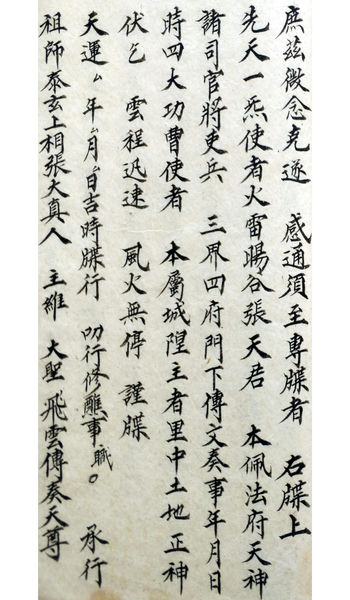 庶茲微念克遂　感通須至專牒者　右牒上
先天一炁使者火雷暘谷張天君　本佩法府天神
諸司官將吏兵　三界四府門下傳文奏事年月日
時四大功曹使者　本屬城隍主者里中土地正神
伏乞　雲程迅速　風火無停　謹牒
天運ム年ム月ム日吉時牒行　叨行修醮事職。　承行
祖師泰玄上相張大真人　主維　大聖飛雲傳奏天尊